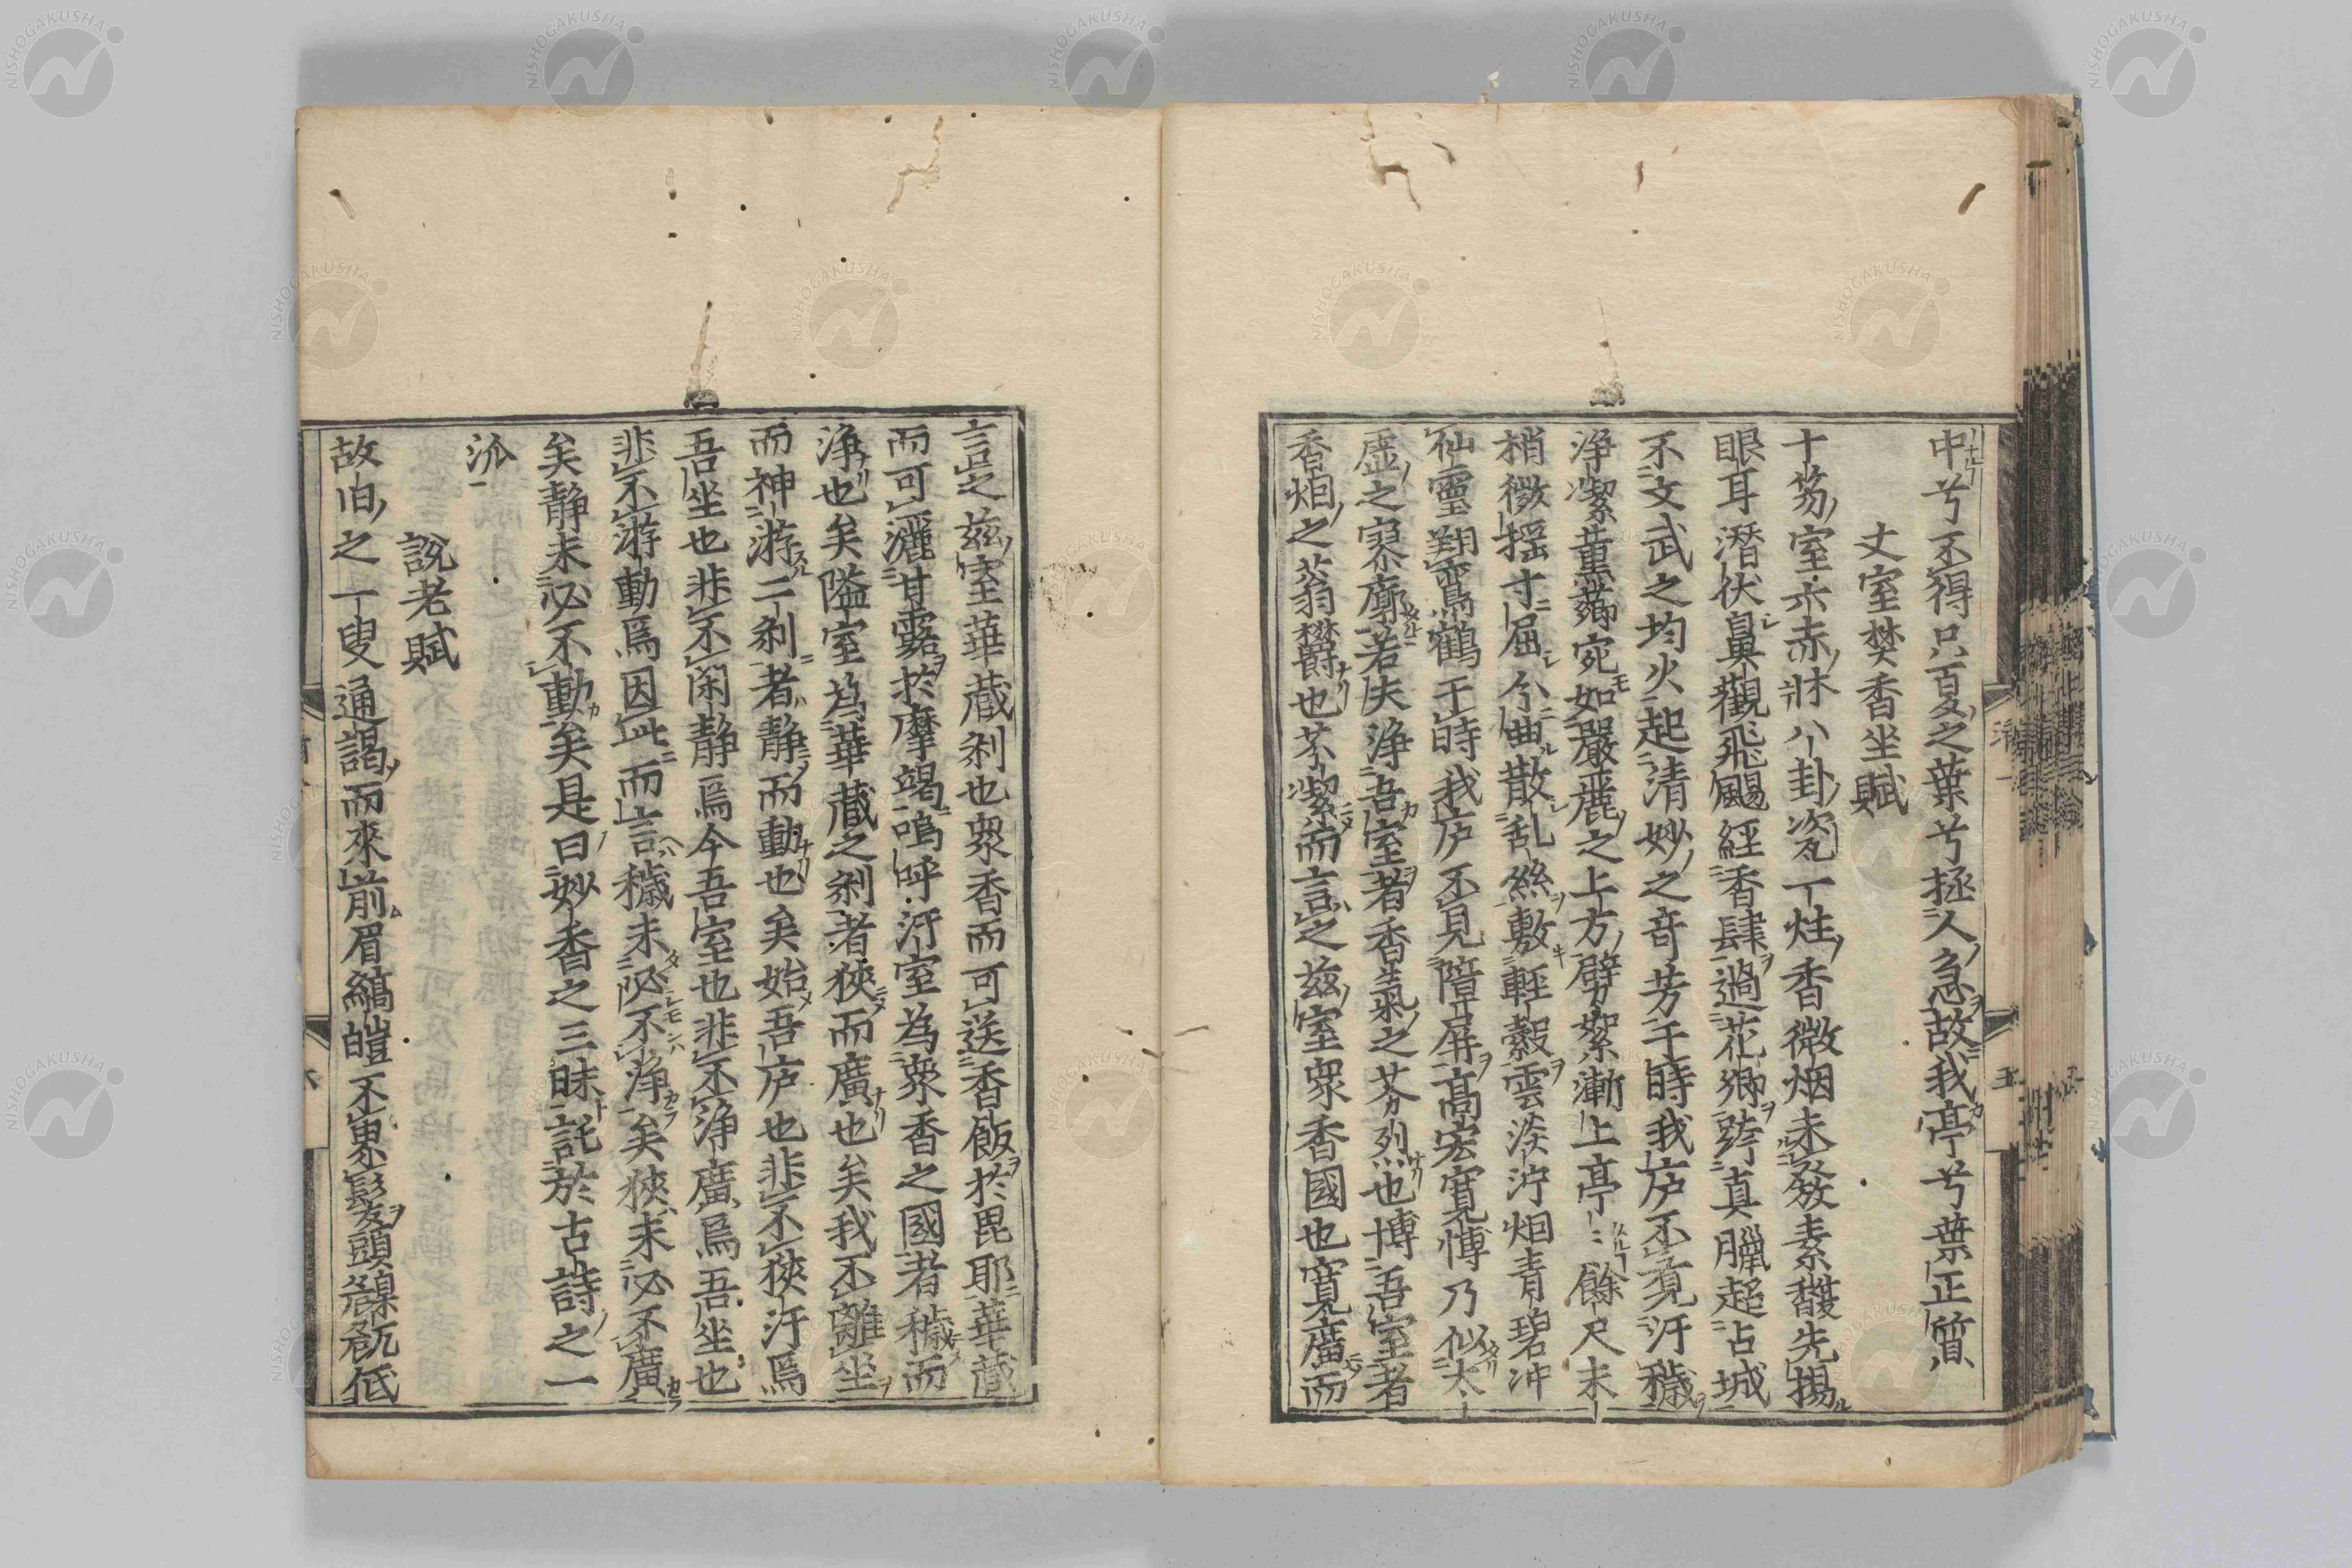 中兮不得只夏之葉兮拯人急故我亭兮葉正質
丈室焚香坐賦
十笏室六赤牀八卦瓷一炷香微烟未發素馥先揚
眼耳潛伏鼻觀飛颺經香肆過花鄉跨真臘超占城
不文武之均火起清妙之奇芳于時我庐不覓汙穢
淨潔薰薌宛如嚴麗之上方劈絮漸上亭〻餘尺末
梢微揺寸屈分曲散乱絲敷輕縠雲淡濘烟青碧冲
仙靈翔鸞鶴于時我庐不見障屏高宏寛博乃似太
虚之寥廓若夫淨吾室者香氣之芬烈也博吾室者
香烟之蓊欝也芬潔而言之茲室衆香國也寛廣而
言之茲室華蔵刹也衆香而可送香飯於毘耶華蔵
而可灑甘露於摩竭嗚呼汙室為衆香之國者穢而
淨也矣隘室為華蔵之刹者狹而廣也矣我不離坐
而神游二刹者静而動也矣始吾庐也非不狹汙焉
吾坐也非不閑静焉今吾室也非不淨廣焉吾坐也
非不游動焉因此而言穢未必不淨矣狹未必不廣
矣静未必不動矣是曰妙香之三昧託於古詩之一
泒
說老賦
故旧之一叟通謁而來前眉縞皚不累髮頭低